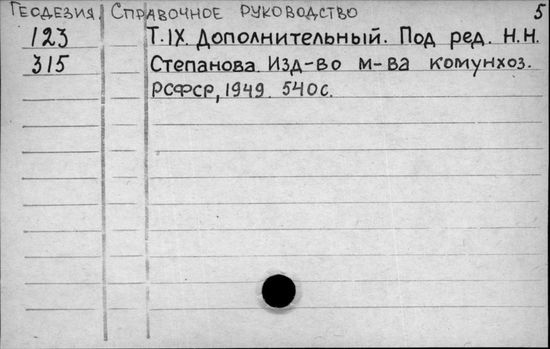 Геодезия. Справочное руководство 5
123 Т.IX. Дополнительный. Под ред. Н.Н.
315 Степанова. Изд-во м-ва комунхоз.
РСФСР, 1949. 540с.